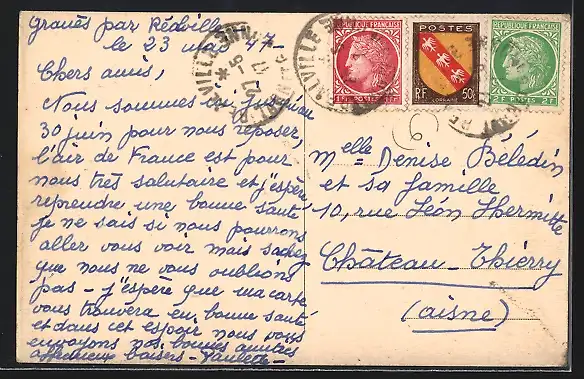 Graves par Rédville
le 23 mai 47 -
Chers amis,
Nous sommes ici jusqu'au
30 juin pour nous reposer,
l'air de France est pour
nous très salutaire et j'espère
reprendre une bonne santé
je ne sais si nous pourrons
aller vous voir mais sachez
que nous ne vous oublions
pas - j'espère que ma carte
vous trouvera en bonne santé
et dans cet espoir nous vous
envoyons nos bonnes amitiés
affectueux baisers - Paulette -
RÉPUBLIQUE FRANÇAISE
POSTES
RF
LORRAINE
50c
RÉPUBLIQUE FRANÇAISE
2F POSTES 2F
6
Melle Denise Bélédin
et sa famille
10, rue Léon Lhermitte
Château-Thierry
(Aisne)